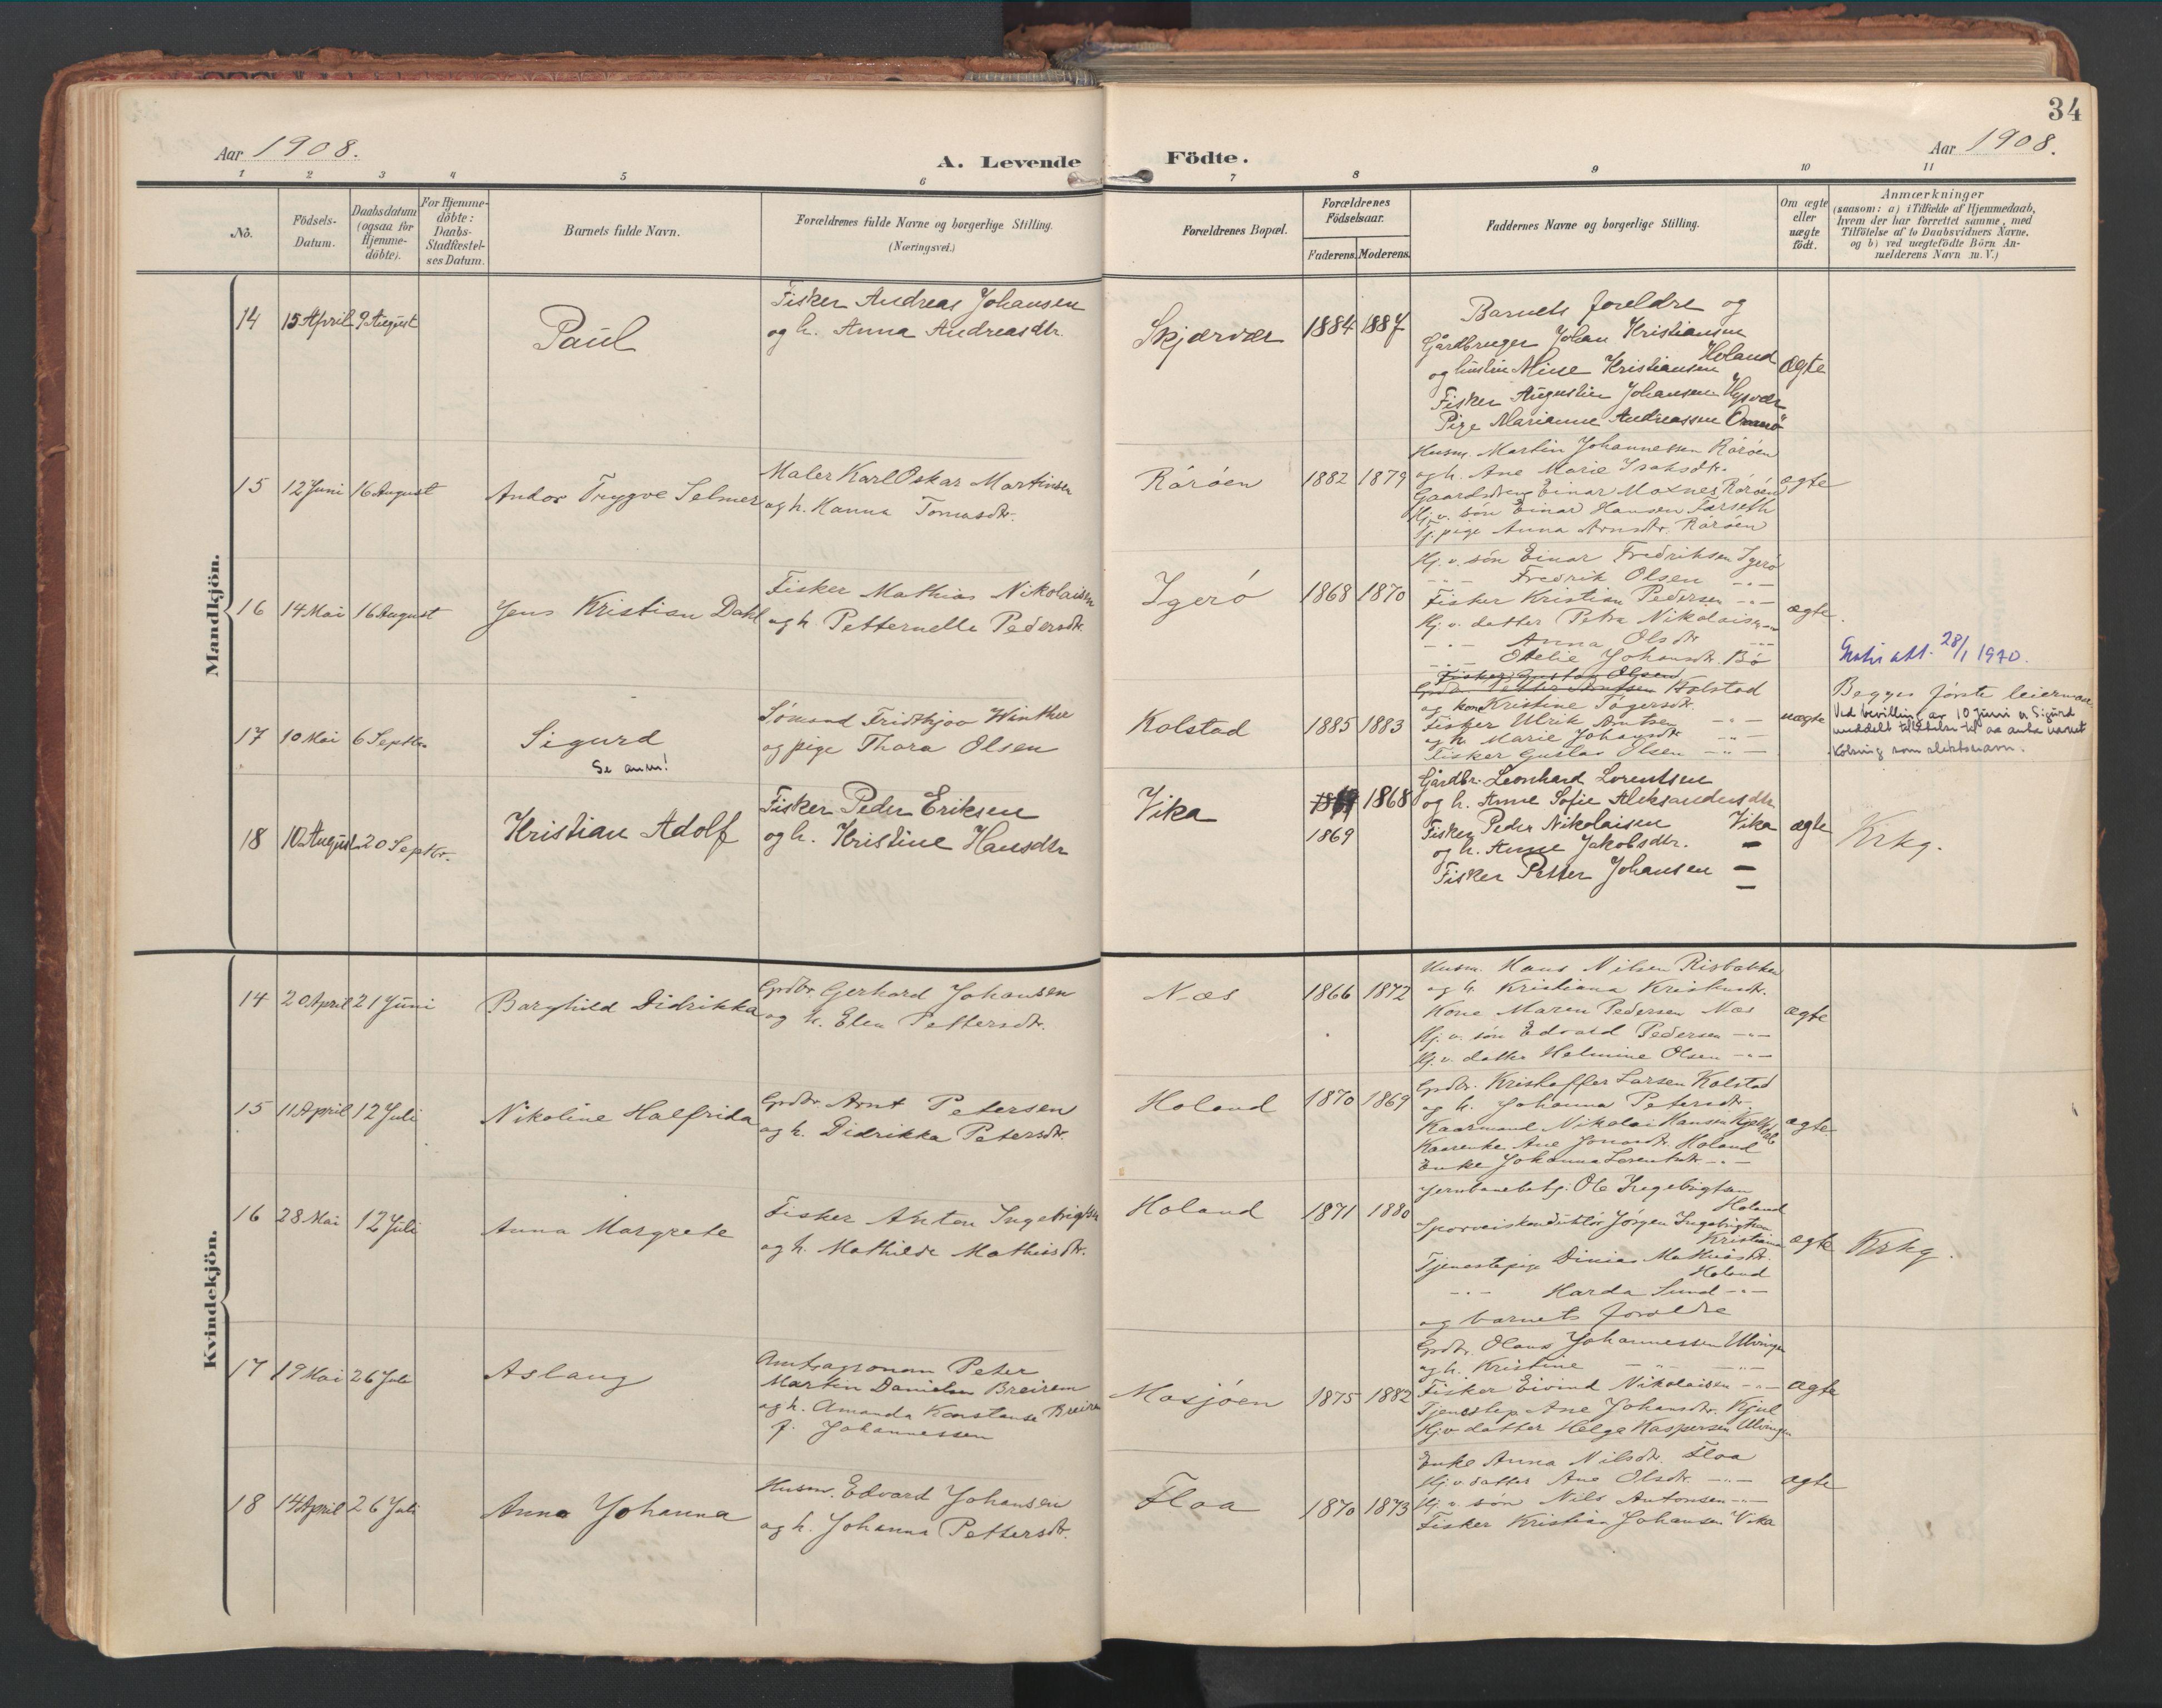 34
Aar 1908.
A. Levende Födte.
Aar 1908.
1 2 3 4 5 6 7 8 9 10 11
No.
Födsels-
Datum.
Daabsdatum
(ogsaa for
Hjemme-
döbte).
For Hjemme-
döbte:
Daabs-
Stadfæstel-
ses Datum.
Barnets fulde Navn.
Forældrenes fulde Navne og borgerlige Stilling.
(Næringsvei.)
Forældrenes Bopæl.
Forældrenes
Födselsaar.
Faderens. Moderens.
Faddernes Navne og borgerlige Stilling.
Om ægte
eller
uægte
födt.
Anmærkninger
(saasom: a) i Tilfælde af Hjemmedaab,
hvem der har forrettet samme, med
Tilföielse af to Daabsvidners Navne.
og b) ved uægtefödte Börn An-
melderens Navn m.V.)
Mandkjön.
14 15 April 9 August
Paul
Fisker Andreas Johansen
og h. Anna Andreasdtr.
Skjærvær
1884 1887
Barnets foreldre og
Gårdbruger Johan Kristiansen
Holand
og hustru Mine Kristiansen
Fisker Augustin Johansen Hysvær
Pige Marianne Andreassen Omnö
Ægte
15 12 Juni 16 August
Andor Trygve Selmer
Maler Karl Oskar Martinsen
og h. Hanna Tomasdtr.
Rörøen
1882 1879
Husm. Martin Johannessen Rörøen
og h. Ane Marie Isaksdtr.
Gaardsdreng Einar Moxnes Rörøen
Hj. v. sön Einar Hansen Færseth
Tj. pige Anna Arnsdtr. Rörøen
ægte
16 14 Mai 16 August
Jens Kristian Dahl
Fisker Mathias Nikolaisen
og h. Petternelle Pedersdtr.
Igerö
1868 1870
Hj. v. sön Einar Fredriksen Igerö
-"- Fredrik Olsen -"-
Fisker Kristian Pedersen -"-
Hj. v. datter Petra Nikolaisen -"-
-"- Anna Olsdtr -"-
-"- Otelie Johansdtr. Bö
ægte.
17 10 Mai 6 Septbr.
Sigurd
Se anm!
Sömand Fridthjov Winther
og pige Thora Olsen
Kolstad
1885 1883
Fisker Gustav Olsen
Grdbr. Petter Arntsen Kolstad
og kone Kristine Tögersdtr.
Fisker Ulrik Arntsen -"-
og h. Marie Johansdtr -"-
Fisker Gustav Olsen -"-
uægte
Gratis att. 28/1 1970.
Begges første leiermaal
Ved bevilling av 10 juni er Sigurd
meddelt tilladelse til aa anta navnet
Kolsing som slektsnavn.
18 10 August 20 Septbr.
Kristian Adolf
Fisker Peder Eriksen
og h. Kristine Hansdtr
Vika
1869
1868
Gårdbr. Leonhard Lorentsen
og h. Anne Sofie Aleksandersdtr
Fisker Peder Nikolaisen Vika
og h. Anne Jakobsdtr. -
Fisker Petter Johansen -
ægte
Krkg.
Kvindekjön.
14 20 April 21 Juni
Borghild Didrikka
Grdbr Gerhard Johansen
og h. Elen Pettersdtr.
Næs
1866 1872
Husm. Hans Nilsen Risbakken
og h. Kristiana Kristensdtr.
Kone Maren Pedersen Næs
Hj. v. sön Edvard Pedersen -"-
Hj. v. datter Helmine Olsen -"-
ægte
15 11 April 12 Juli
Nikoline Halfrida
Grdbr Arnt Petersen
og h. Didrikka Petersdtr.
Holand
1870 1869
Grdbr. Kristoffer Larsen Kolstad
og h. Johanna Petersdtr.
Kaarmand Nikolai Hansen
Kaarenke Ane Jonasdtr. Holand
Enke Johanna Lorentsdtr. -"-
ægte.
16 28 Mai 12 Juli
Anna Margrete
Fisker Anton Ingebrigtsen
og h. Mathilde Mathisdtr.
Holand
1871 1880
Jernbanebetj. Ole Ingebrigtsen
Holand
Sporveiskonduktör Jörgen Ingebrigtsen
Kristiania
Tjenestepige Dinias Mathiasdtr.
Holand
-"- Harda Sund -"-
og barnets foreldre
ægte
Krkg.
17 19 Mai 26 Juli
Aslaug
Amtsagronom Peter
Martin Danielsen Breirem
og h. Amanda Konstanse Breirem
f. Johannessen
Mosjøen
1875 1882
Grdbr. Olaus Johannessen Ulvingen
og h. Kristine -"- -"-
Fisker Eivind Nikolaisen -"-
Tjenestep. Ane Johansdtr. Kjul
Hjv. datter Helga Kaspersen Ulvingen
ægte
18 14 April 26 Juli
Anna Johanna
Husm. Edvard Johansen
og h. Johanna Pettersdtr.
Floa
1870 1873
Enke Anna Nilsdtr. Floa
Hj. v. datter Ane Olsdtr. -"-
Hj. v. sön Nils Antonsen -"-
Fisker Kristian Johansen Vika
ægte